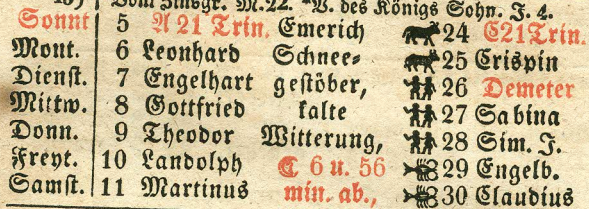 Vom Zinsgr. M. 22. V. des Königs Sohn. J. 4.
Sonnt 5 A 21 Trin. Emerich 24 C21Trin.
Mont. 6 Leonhard Schnee⸗ 25 Crispin
Dienst. 7 Engelhart gestöber, 26 Demeter
Mittw. 8 Gottfried kalte 27 Sabina
Donn. 9 Theodor Witterung, 28 Sim. J.
Freyt. 10 Landolph ☾ 6 u. 56 29 Engelb.
Samst. 11 Martinus min. ab., 30 Claudius